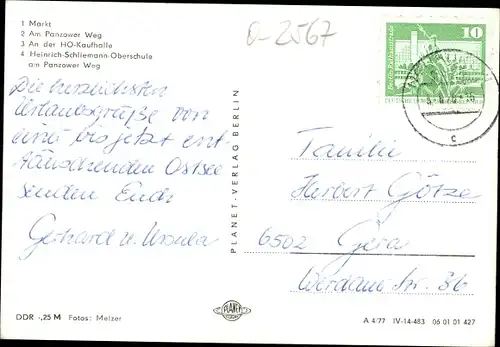 1 Markt
2 Am Panzower Weg
3 An der HO-Kaufhalle
4 Heinrich-Schliemann-Oberschule
am Panzower Weg
0-2567
10
Die herzlichsten
Urlaubsgrüße von
einer bis jetzt ent-
täuschenden Ostsee
senden Euch
Gerhard u. Ursula
PLANET-VERLAG BERLIN
Familie
Herbert Götze
6502 Gera
Werdauer Str. 86
DDR -,25 M Fotos: Melzer
PLANET
A 4/77 IV-14-483 06 01 01 427
c